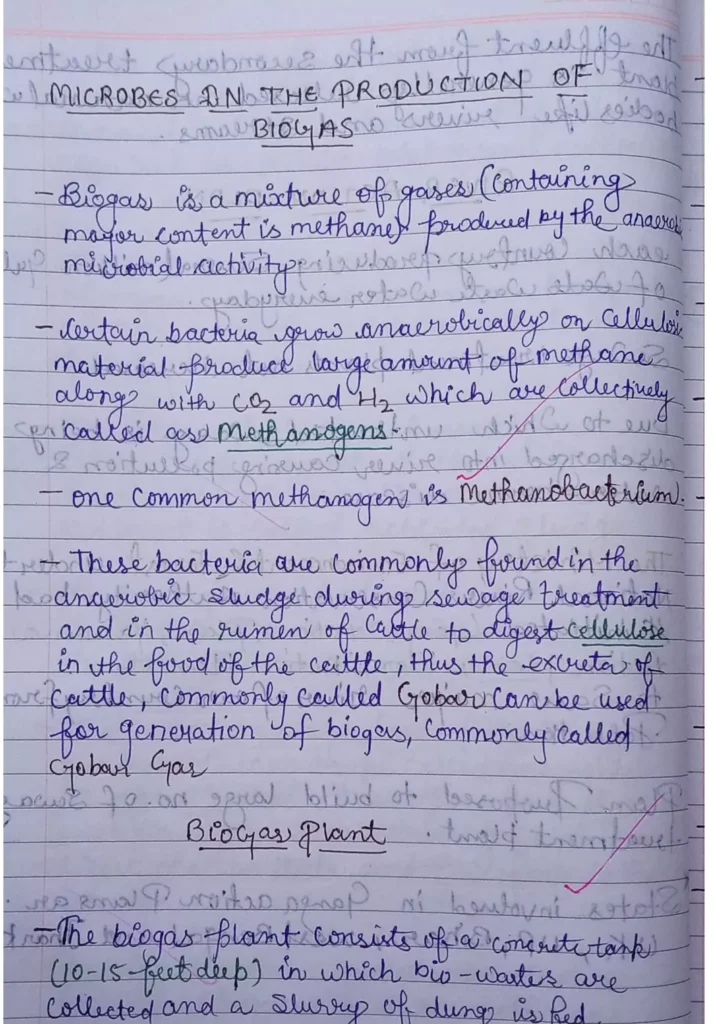 MICROBES IN THE PRODUCTION OF
BIOGAS
- Biogas is a mixture of gases (containing
major content is methane) produced by the anaerob
microbial activity.
- Certain bacteria grow anaerobically on cellulosic
material produce large amount of methane
along with CO2 and H2 which are collectively
called as Methanogens.
- one common methanogen is Methanobacterium.
- These bacteria are commonly found in the
anaerobic sludge during sewage treatment
and in the rumen of cattle to digest cellulose
in the food of the cattle, thus the excreta of
cattle, commonly called Gobar can be used
for generation of biogas, commonly called
Gobar Gas
BioGas Plant
- The biogas plant consists of a concrete tank
(10-15 feet deep) in which bio-wastes are
collected and a slurry of dung is fed.